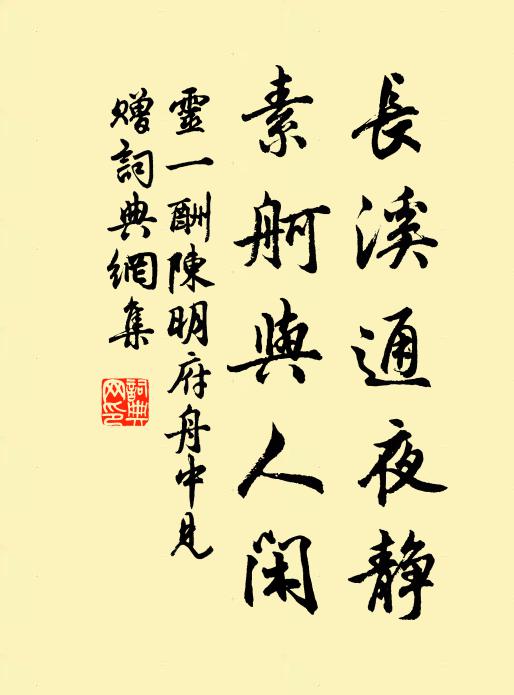 長溪通夜静
素舸與人闲
靈一酬陳明府舟中見
贈詞典網集
詞典
网印